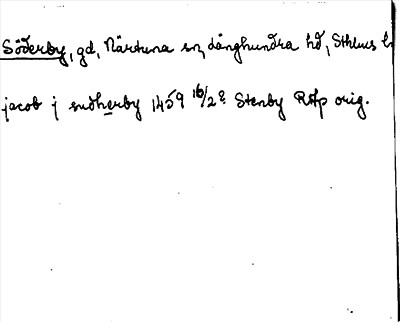 Söderby, gd, Närtuna sn, Långhundra hd, Sthlms l
jacob j sudherby 1459 16/2 Stenby RAp orig.